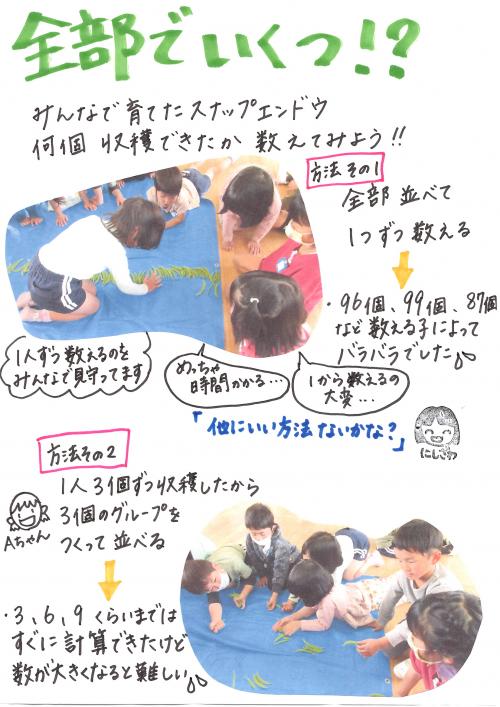 全部でいくつ!?
みんなで育てたスナップエンドウ
何個 収穫できたか 数えてみよう!!
方法その1
全部並べて
1つずつ数える
・96個、99個、87個
など数える子によって
バラバラでした
1人ずつ数えるのを
みんなで見守ってます
めっちゃ
時間かかる…
1から数えるの
大変…
「他にいい方法ないかな?」
にしざわ
方法その2
1人3個ずつ収穫したから
3個のグループを
つくって並べる
Aちゃん
・3、6、9くらいまでは
すぐに計算できたけど
数が大きくなると難しい